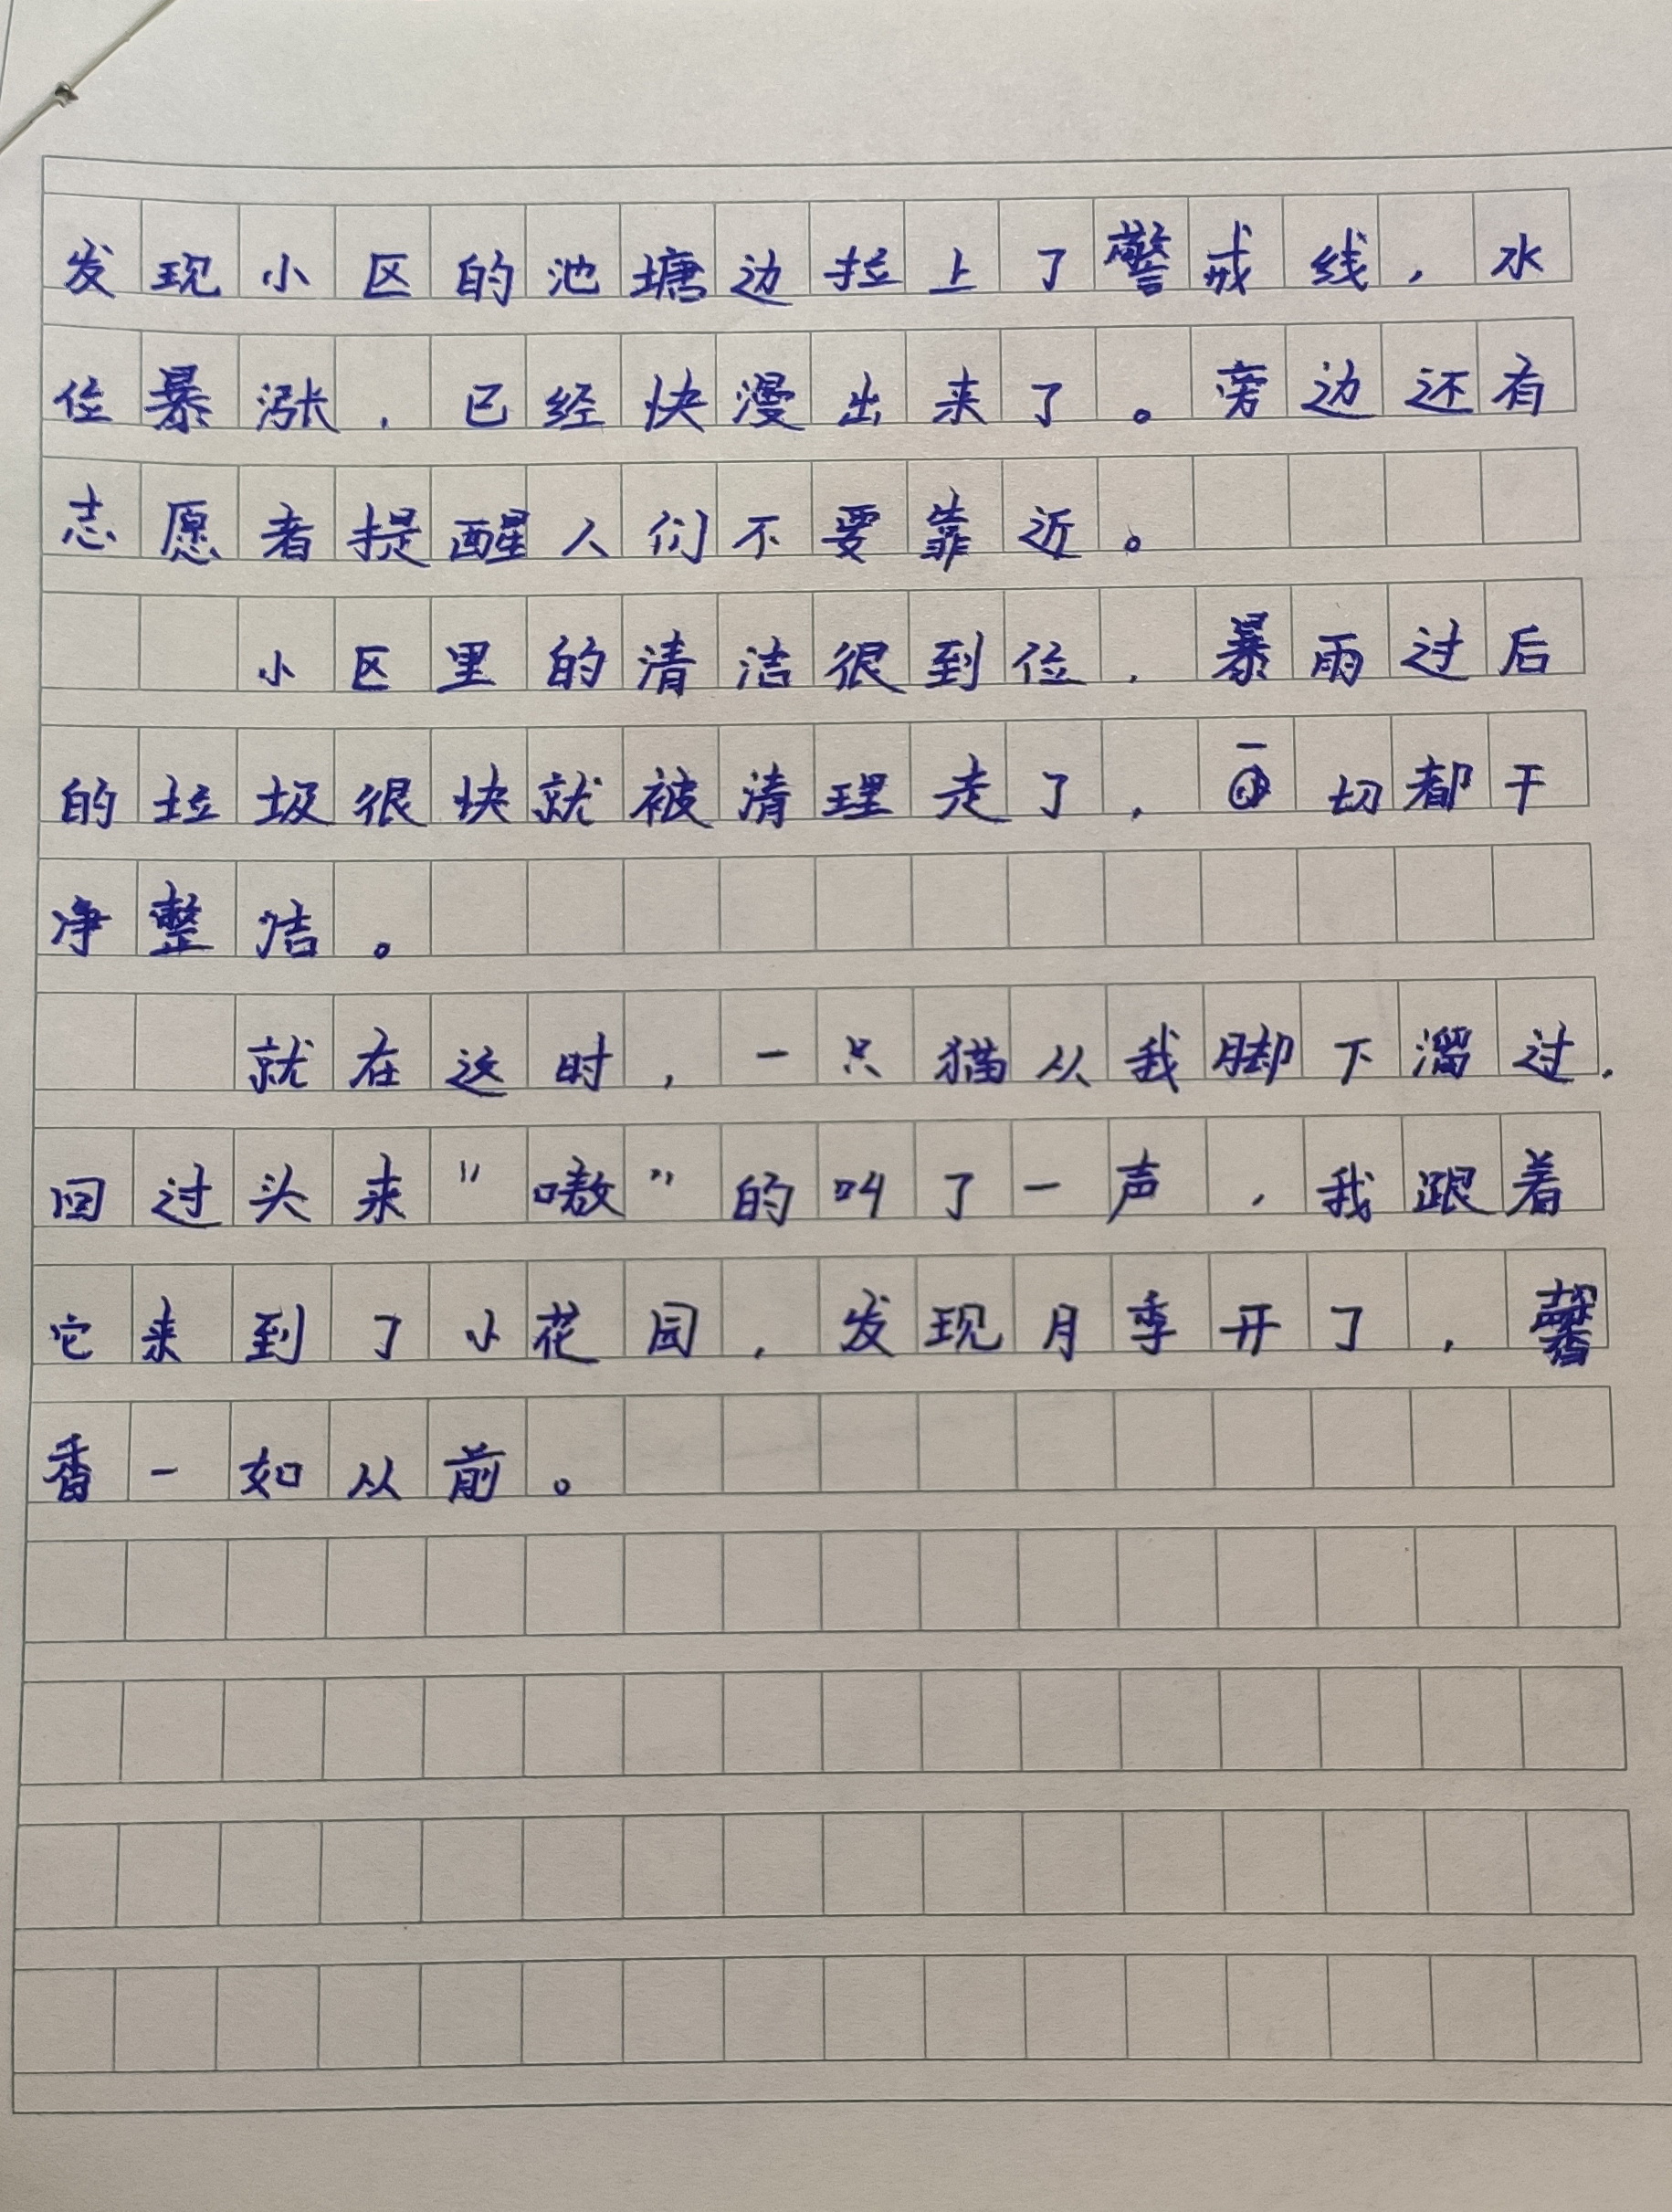 发现小区的池塘边拉上了警戒线，水
位暴涨，已经快漫出来了。旁边还有
志愿者提醒人们不要靠近。
小区里的清洁很到位，暴雨过后
的垃圾很快就被清理走了，一切都干
净整洁。
就在这时，一只猫从我脚下溜过，
回过头来“嗷”的叫了一声，我跟着
它来到了小花园，发现月季开了，馨
香一如从前。